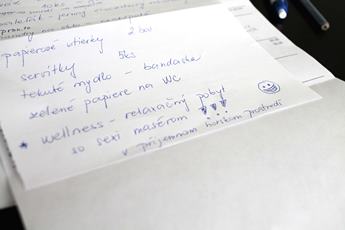 papierové utierky 2 bal
servítky 5ks
tekuté mydlo - bandaska
zelené papiere na WC
* wellness - relaxačný pobyt
so sexi masérom
v príjemnom horskom prostredí